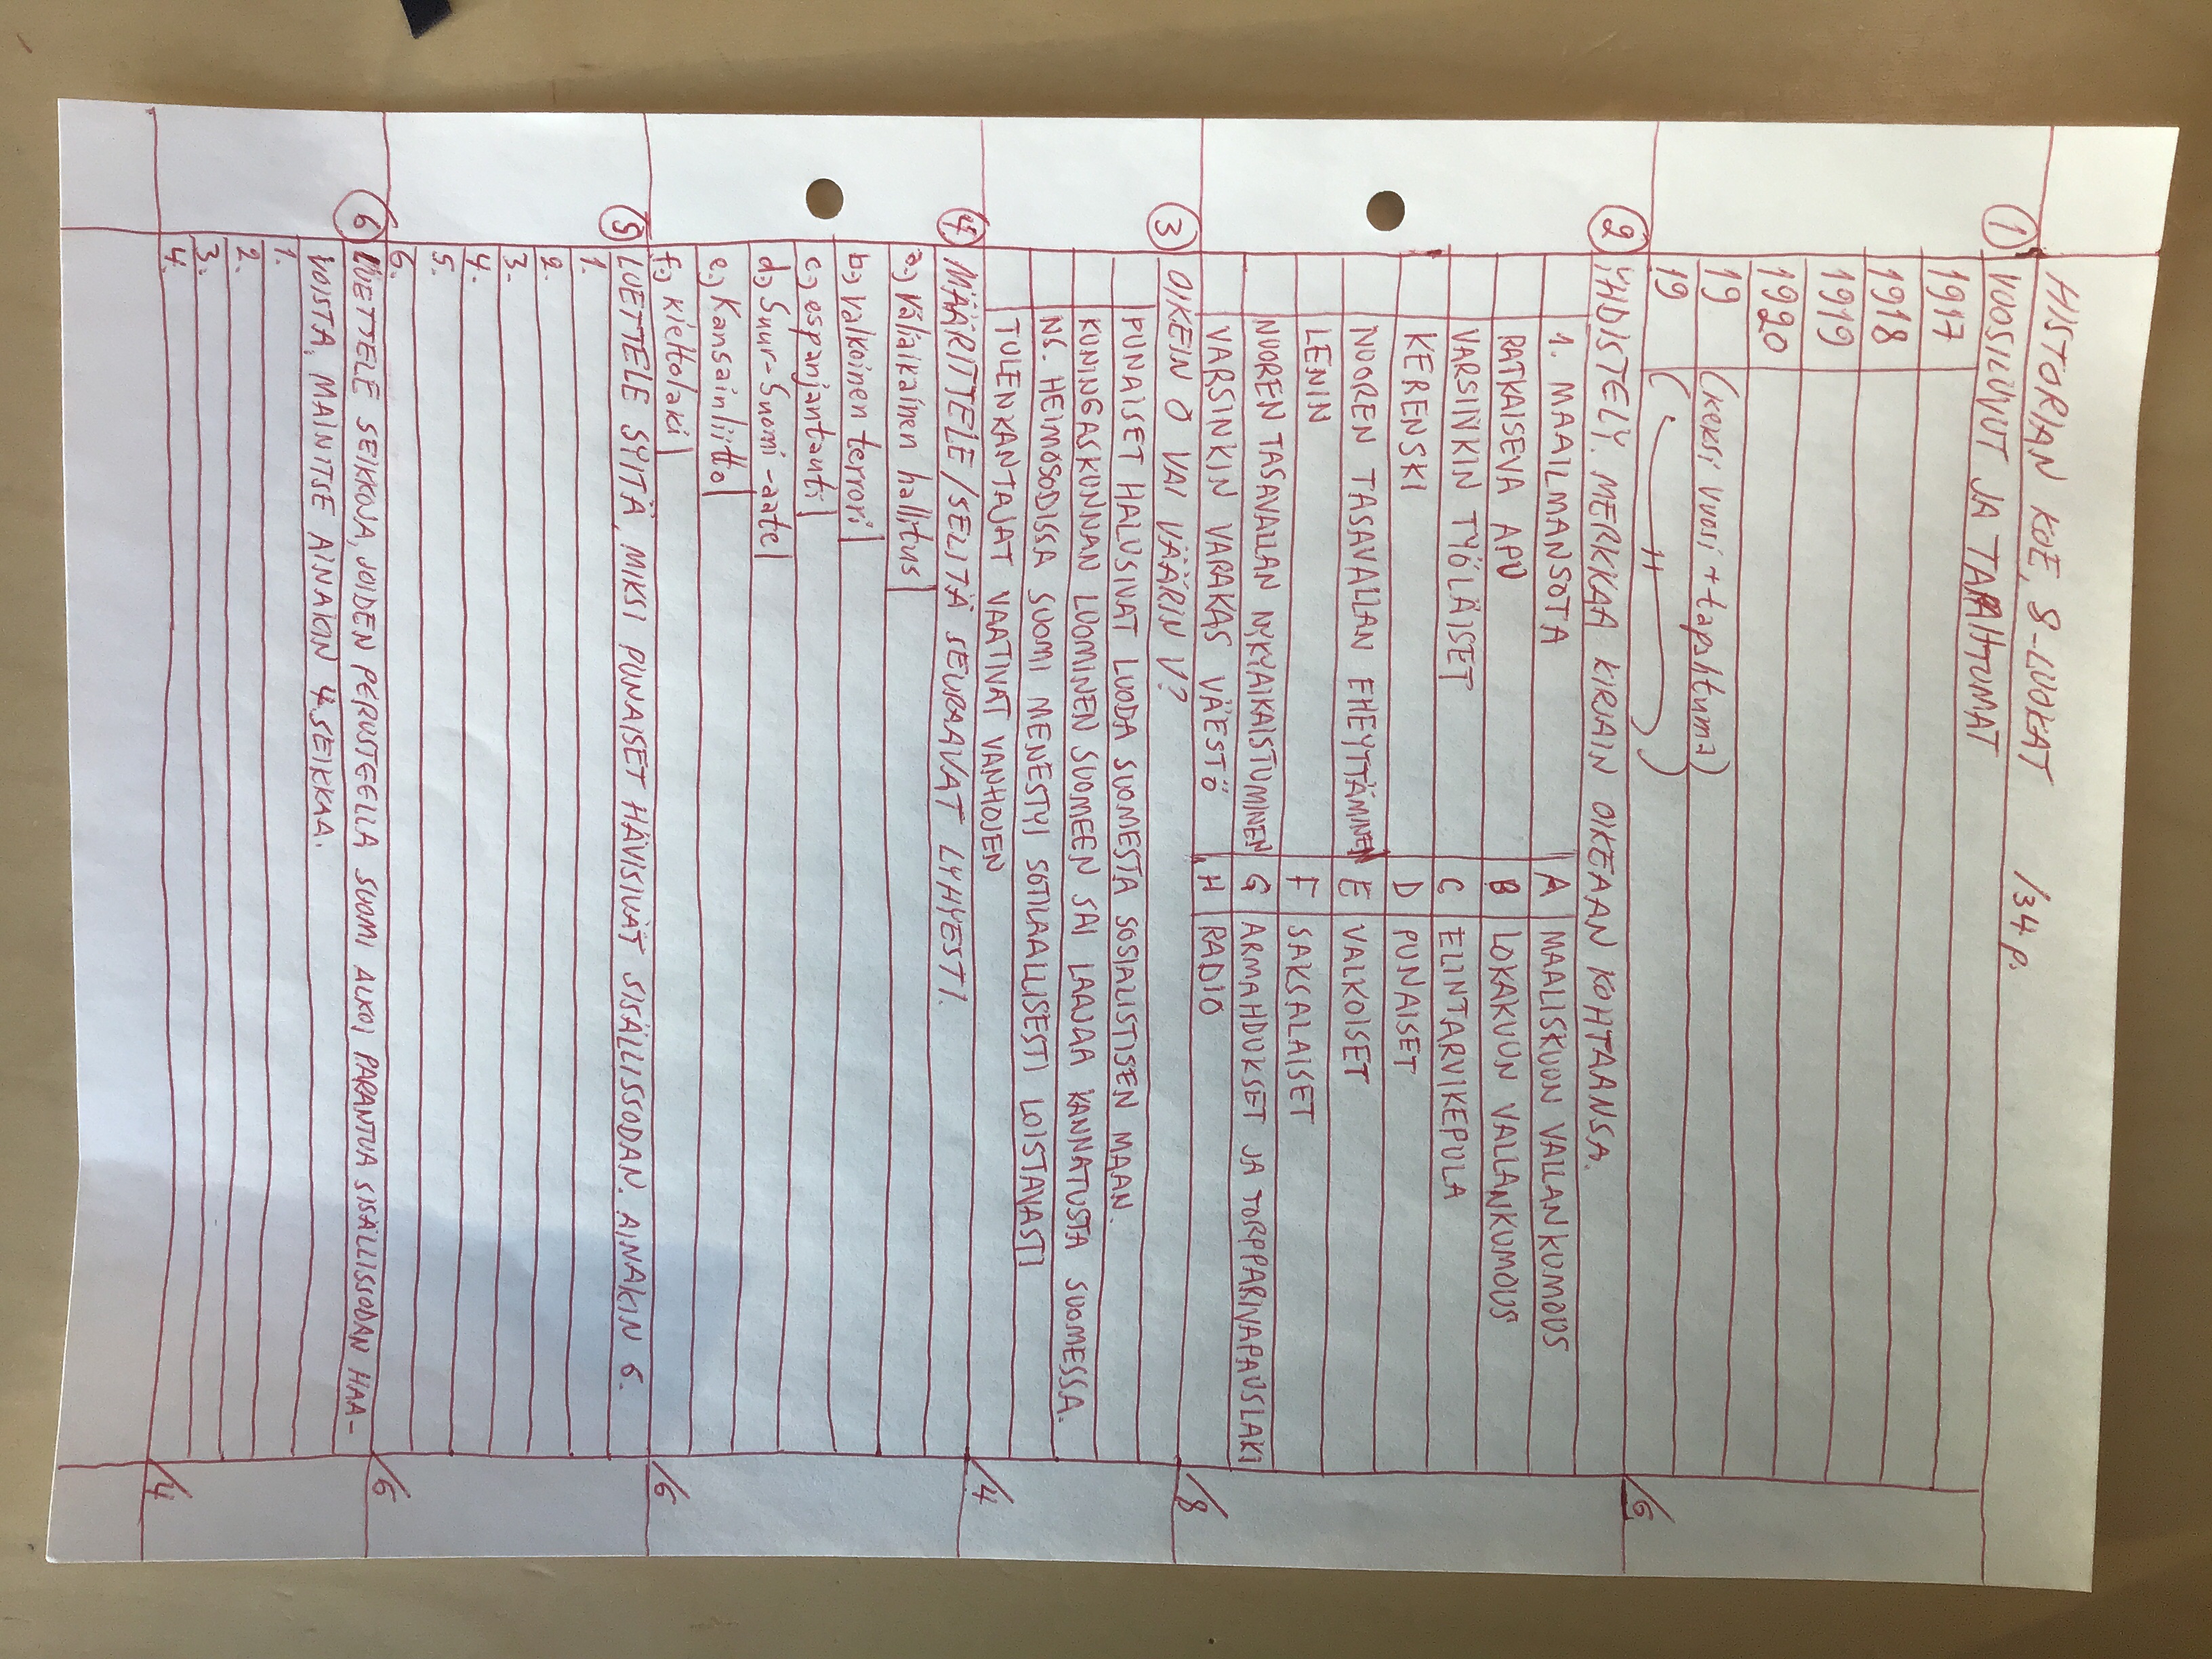 HISTORIAN KOE, 8-LUOKAT /34 p.
① VUOSILUVUT JA TAPAHTUMAT
1917
1918
1919
1920
19 (keksi vuosi + tapahtuma)
19 ( — " — )
/6
② YHDISTELY. MERKKAA KIRJAIN OIKEAAN KOHTAANSA.
1. MAAILMANSOTA A MAALISKUUN VALLANKUMOUS
RATKAISEVA APU B LOKAKUUN VALLANKUMOUS
VARSINKIN TYÖLÄISET C ELINTARVIKEPULA
KERENSKI D PUNAISET
NUOREN TASAVALLAN EHEYTTÄMINEN E VALKOISET
LENIN F SAKSALAISET
NUOREN TASAVALLAN NYKYAIKAISTUMINEN G ARMAHDUKSET JA TORPPARIVAPAUSLAKI
VARSINKIN VARAKAS VÄESTÖ H RADIO
/8
③ OIKEIN O VAI VÄÄRIN V?
PUNAISET HALUSIVAT LUODA SUOMESTA SOSIALISTISEN MAAN.
KUNINGASKUNNAN LUOMINEN SUOMEEN SAI LAAJAA KANNATUSTA SUOMESSA.
NS. HEIMOSODISSA SUOMI MENESTYI SOTILAALLISESTI LOISTAVASTI
TULENKANTAJAT VAATIVAT VANHOJEN
/4
④ MÄÄRITTELE/SELITÄ SEURAAVAT LYHYESTI.
a.) Väliaikainen hallitus
b.) Valkoinen terrori
c.) espanjantauti
d.) Suur-Suomi-aate
e.) Kansainliitto
f.) kieltolaki
/6
⑤ LUETTELE SYITÄ, MIKSI PUNAISET HÄVISIVÄT SISÄLLISSODAN. AINAKIN 6.
1.
2.
3.
4.
5.
6.
/6
⑥ LUETTELE SEIKKOJA, JOIDEN PERUSTEELLA SUOMI ALKOI PARANTUA SISÄLLISSODAN HAA-
VOISTA. MAINITSE AINAKIN 4 SEIKKAA.
1.
2.
3.
4.
/4